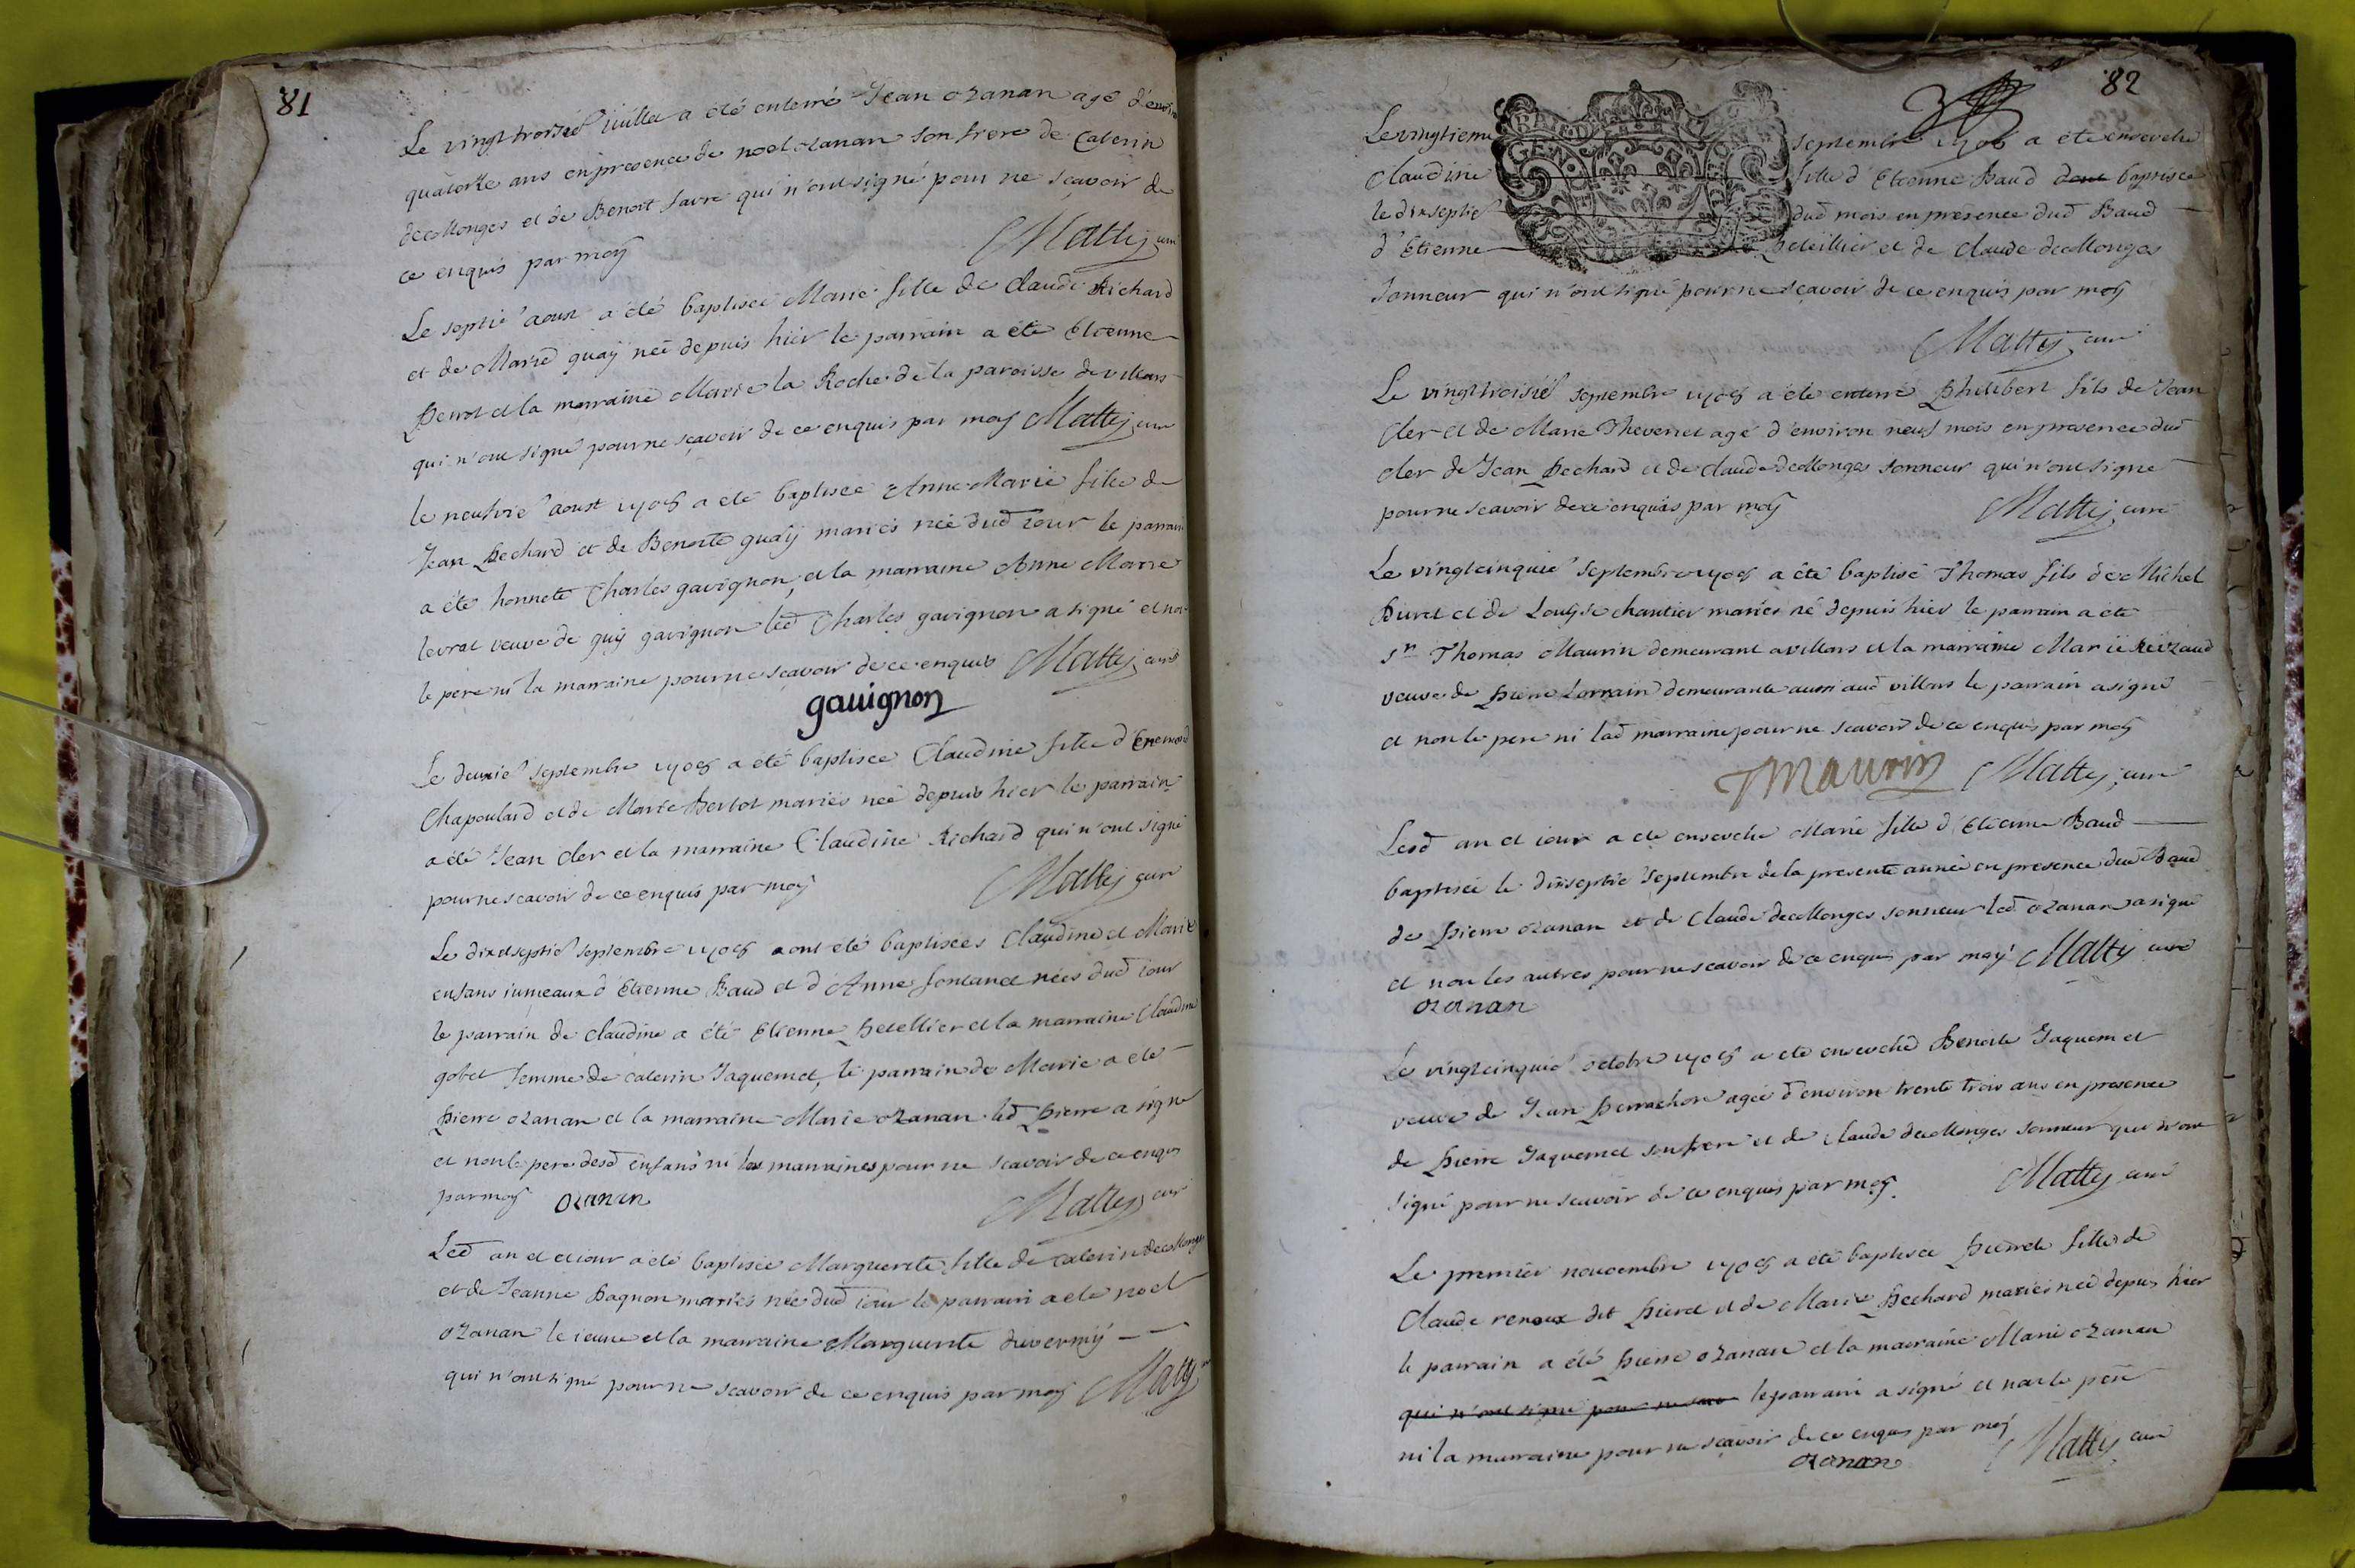 81
Le vingt troisie Juillet a été enterré Jean ozanan agé d'environ
quatorze ans en presence de noel ozanan son frere de Caterin
decollonges et de Benoit favre qui n'ont signé pour ne sçavoir de
ce enquis par moy Mattij curé
Le septie aoust a été baptisée Marie fille de Claude Richard
et de Marie guaÿ née depuis hier le parrain a été Etienne
Perrot et la marraine Marie la Roche de la paroisse de villars
qui n'ont signé pour ne sçavoir de ce enquis par moy Mattij curé
le neufvie aoust 1708 a été baptisée Anne Marie fille de
Jean Bechard et de Benoite guaÿ mariés née dud jour le parrain
a été honnete Charles gavignon, et la marraine Anne Marie
levrat veuve de guÿ gavignon led Charles gavignon a signé et non
le pere ni la marraine pour ne sçavoir de ce enquis Mattij curé
gauignon
Le deuxie septembre 1708 a été baptisée Claudine fille d'Enemond
Chapoulard et de Marie Bertot mariés née depuis hier le parrain
a été Jean cler et la marraine Claudine Richard qui n'ont signé
pour ne scavoir de ce enquis par moy Mattij curé
Le dixetseptie septembre 1708 ont été baptisées Claudine et Marie
enfans jumeaux d'Etienne Baud et d'Anne fontanet nées dud jour
le parrain de Claudine a été Etienne Peteillier et la marraine Claudine
gobet femme de caterin Jaquemet, le parrain de Marie a été
Pierre ozanan et la marraine Marie ozanan led Pierre a signé
et non le pere desd enfans ni les marraines pour ne scavoir de ce enquis
par moy ozanan Mattij curé
Led an et jour a été baptisée Marguerite fille de caterin decollonges
et de Jeanne Pagnon mariés née dud jour le parrain a été noel
ozanan le jeune et la marraine Marguerite duvernij
qui n'ont signé pour ne scavoir de ce enquis par moy Mattij
82
Le vingtieme septembre 1708 a été ensevelie
Claudine fille d'Etienne Baud baptisée
le dixseptie dud mois en presence dud Baud
d'Etienne Peteillier et de Claude decollonges
sonneur qui n'ont signé pour ne sçavoir de ce enquis par moy
Mattij curé
Le vingttroisie septembre 1708 a été enterré Philibert fils de Jean
cler et de Marie Thevenet agé d'environ neuf mois en presence dud
cler de Jean Bechard et de Claude decollonges sonneur qui n'ont signé
pour ne scavoir de ce enquis par moy Mattij curé
Le vingtcinquie septembre 1708 a été baptisé Thomas fils de Michel
Duret et de Louyse chantier mariés né depuis hier le parrain a été
sr Thomas Maurin demeurant a villars et la marraine Marie
veuve de Pierre Lorrain demeurante aussi aud villars le parrain a signé
et non le pere ni lad marraine pour ne scavoir de ce enquis par moy
TMaurin Mattij curé
Lesd an et jour a été ensevelie Marie fille d'Etienne Baud
baptisée le dixseptie septembre de la presente année en presence dud Baud
de Pierre ozanan et de Claude decollonges sonneur led ozanan a signé
et non les autres pour ne scavoir de ce enquis par moy Mattij curé
ozanan
Le vingtcinquie octobre 1708 a été ensevelie Benoite Jaquemet
veuve de Jean Perrachon agée d'environ trente trois ans en presence
de Pierre Jaquemet son frere et de Claude decollonges sonneur qui n'ont
signé pour ne scavoir de ce enquis par moy Mattij curé
Le premier novembre 1708 a été baptisée Pierrete fille de
Claude renoux dit Pieret et de Marie Bechard mariés née depuis hier
le parrain a été Pierre ozanan et la marraine Marie ozanan
qui n'ont signé pour ne sca le parrain a signé et non le pere
ni la marraine pour ne scavoir de ce enquis par moy Mattij curé
ozanan